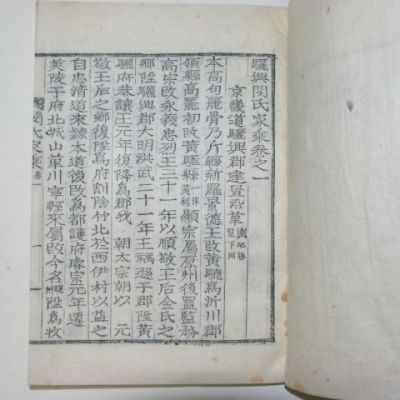 驪興閔氏家乘卷之一
京畿道驪興郡建置沿革 輿地勝覽下同
本高句麗骨乃斤縣新羅景德王改黃驍爲沂川郡
領縣高麗初改黃驪縣 顯宗屬原州後置監務
高宗改永義忠烈王三十一年以順敬王后金氏之
鄕陞驪興郡大明洪武二十一年王禑遜于郡陞黃
驪府恭讓王元年復降爲郡我 朝太宗朝以 元
敬王后之鄕復陞爲府割陰竹北於西伊村以益之
自忠清道來隸本道後改爲都護府睿宗元年遷
英陵于府北城山革川寧縣來屬改今名陞爲牧
閔氏家乘 卷一